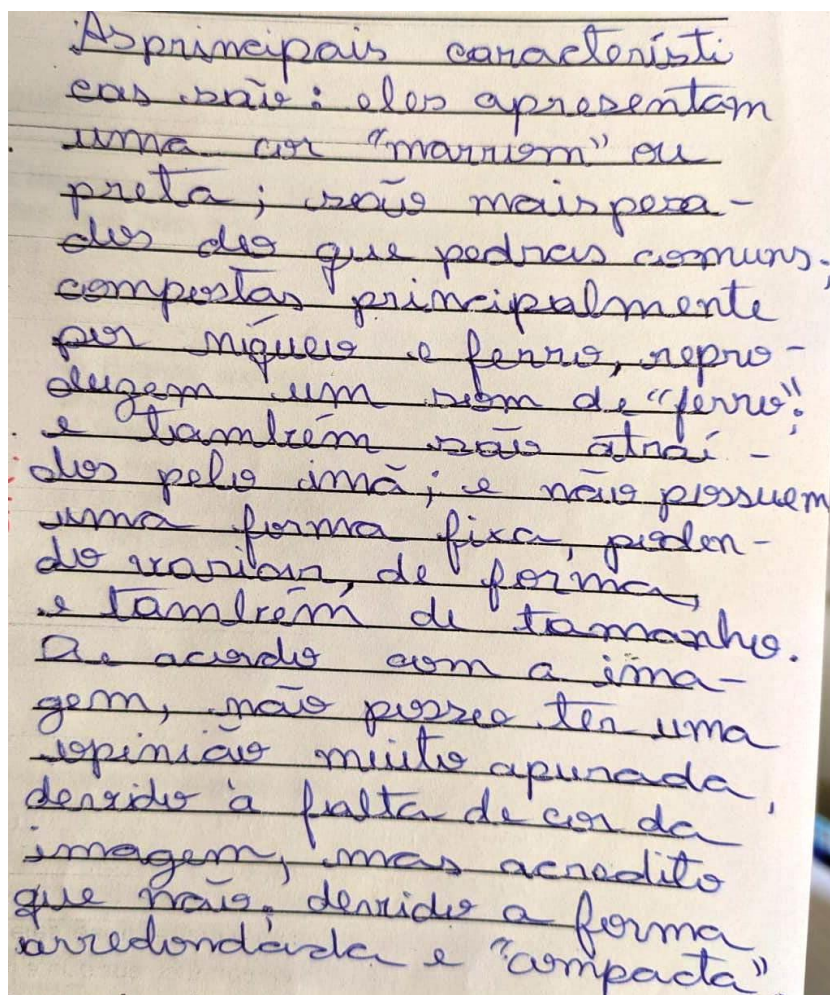 As principais característi
cas são: eles apresentam
uma cor "marrom" ou
preta; são mais pesa-
dos do que pedras comuns;
compostas principalmente
por níqueis e ferro, repro-
duzem um som de "ferro";
e também são atraí-
dos pelo imã; e não possuem
uma forma fixa, poden-
do variar, de forma,
e também de tamanho.
De acordo com a ima-
gem, não posso ter uma
opinião muito apurada,
devido à falta de cor da
imagem, mas acredito
que não, devido a forma
arredondada e "compacta".